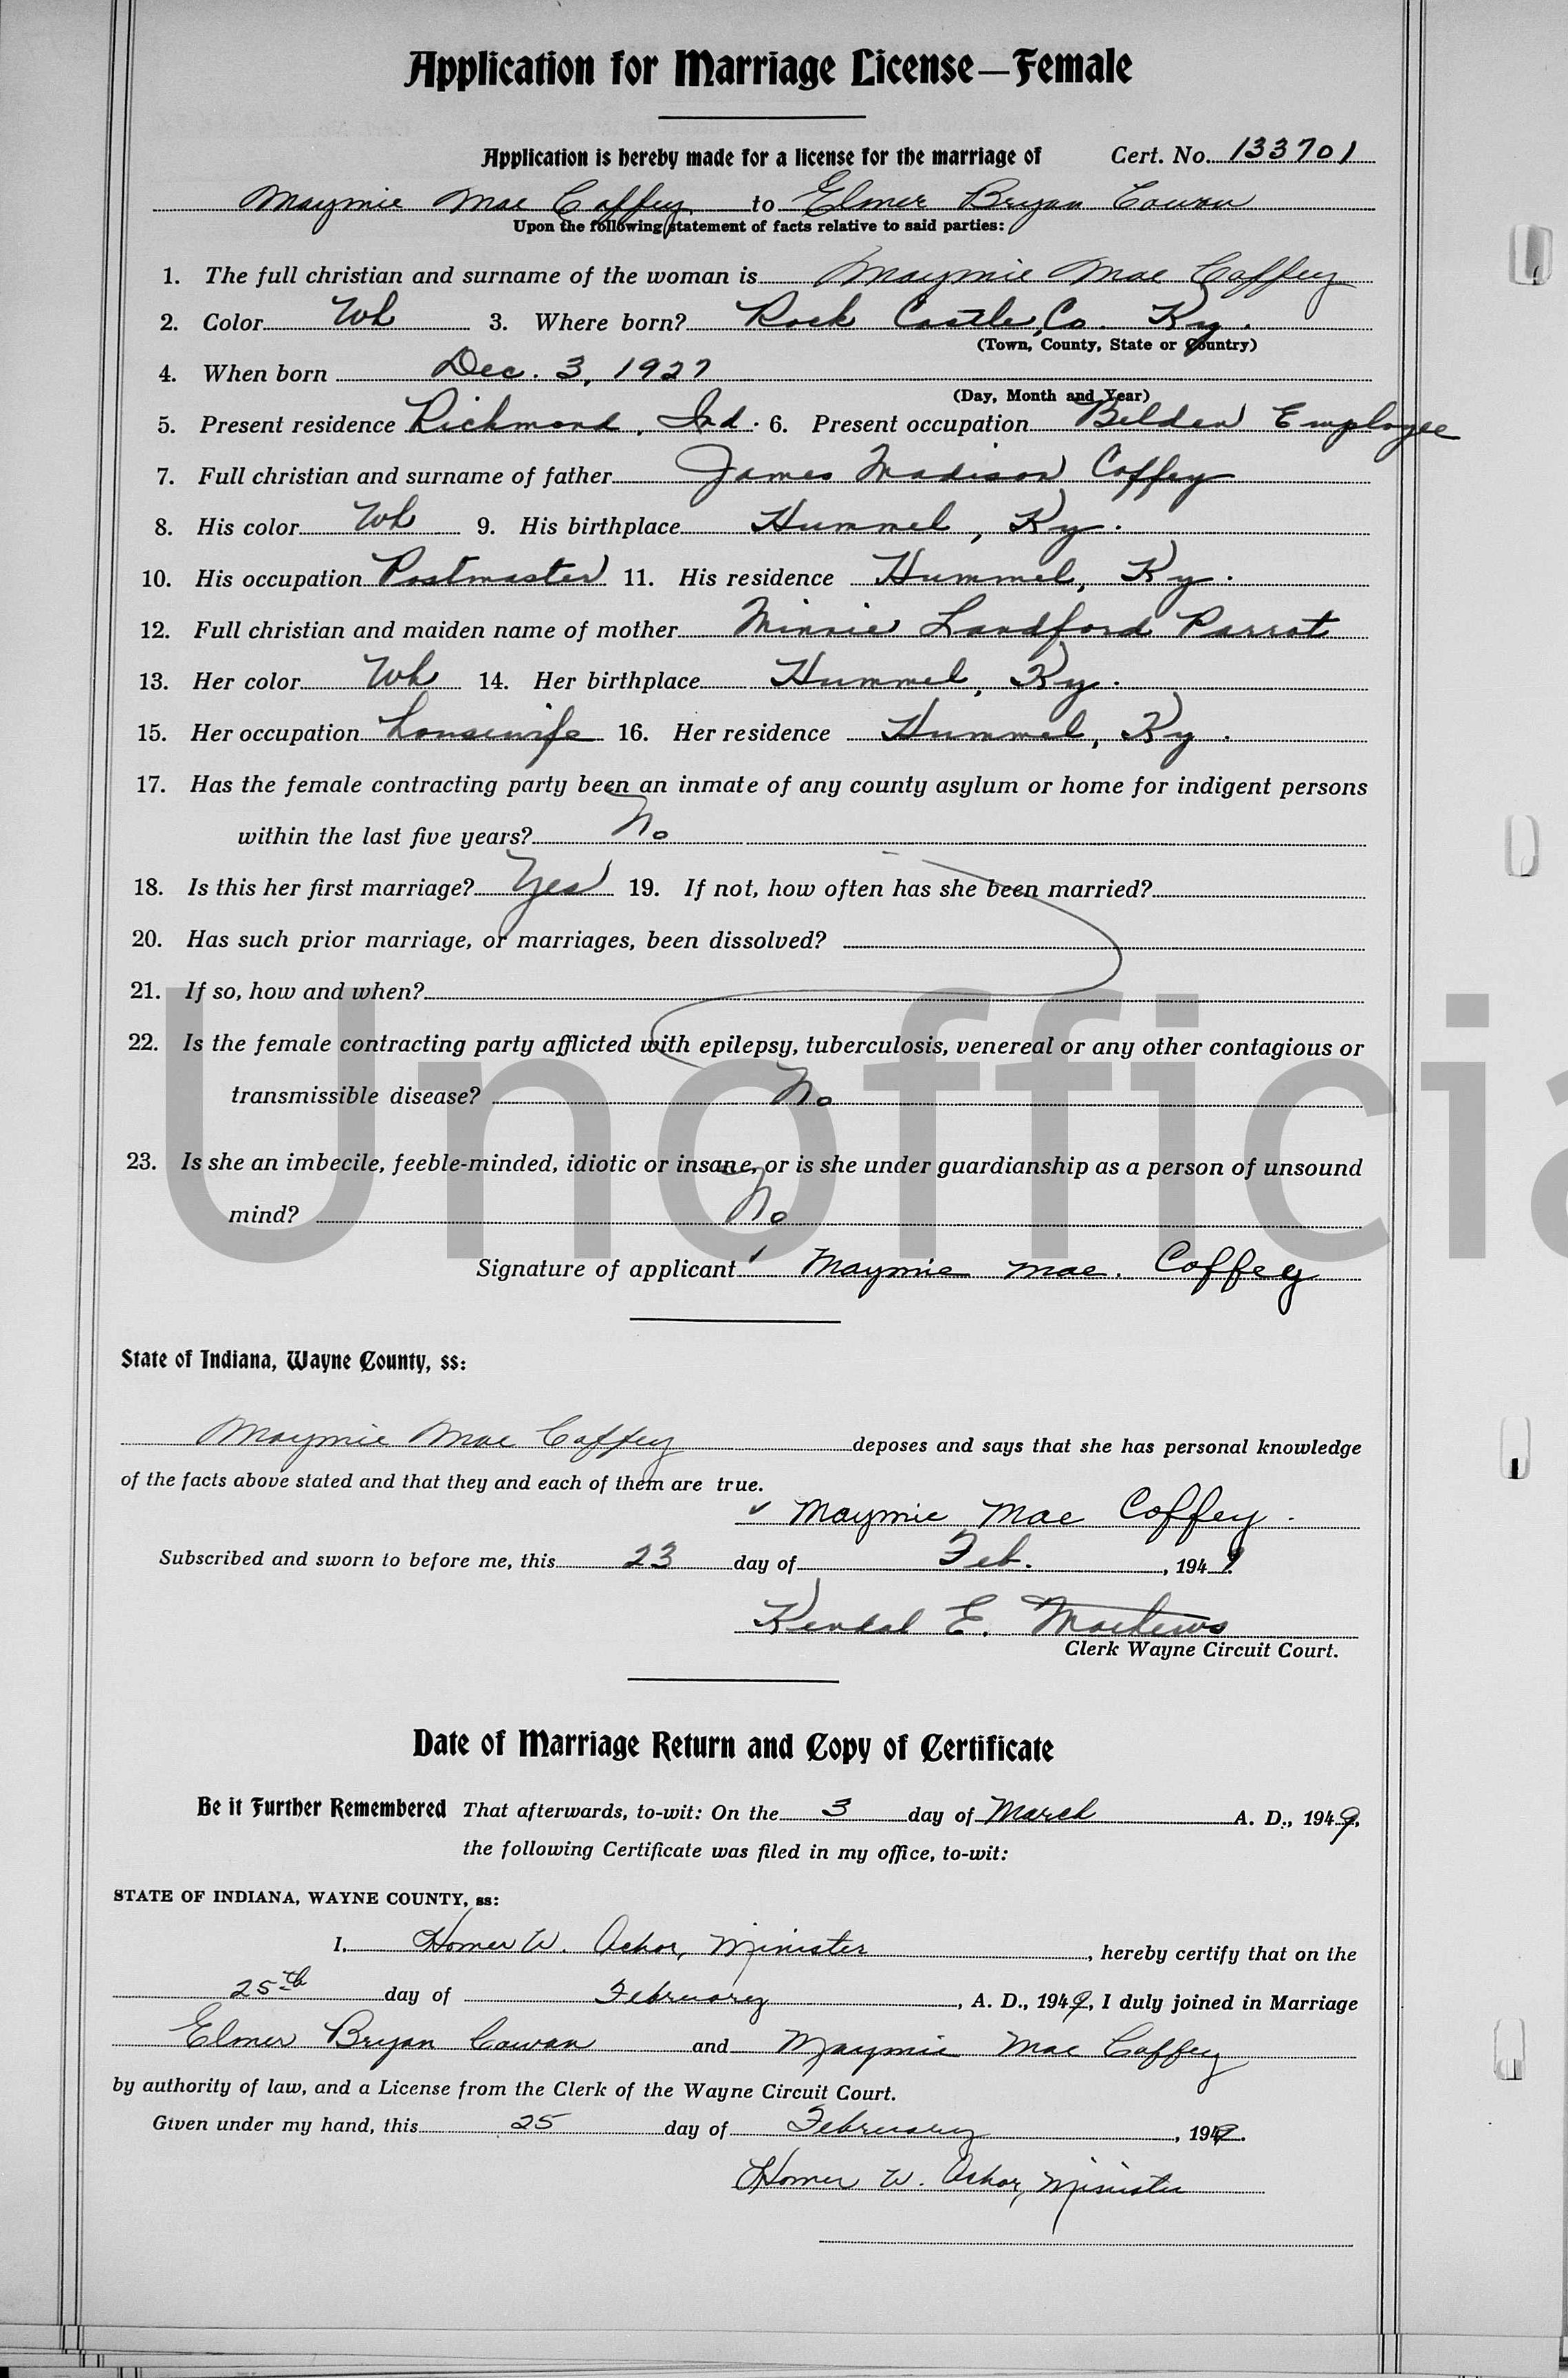 Application for Marriage License—Female
Application is hereby made for a license for the marriage of Cert. No. 133701
Maymie Mae Coffey to Elmer Bryan Cowan
Upon the following statement of facts relative to said parties:
1. The full christian and surname of the woman is Maymie Mae Coffey
2. Color Wh 3. Where born? Rock Castle, Co. Ky.
(Town, County, State or Country)
4. When born Dec. 3, 1927
(Day, Month and Year)
5. Present residence Richmond, Ind. 6. Present occupation Belden Employee
7. Full christian and surname of father James Madison Coffey
8. His color Wh 9. His birthplace Hummel, Ky.
10. His occupation Postmaster 11. His residence Hummel, Ky.
12. Full christian and maiden name of mother Minnie Landford Parrot
13. Her color Wh 14. Her birthplace Hummel, Ky.
15. Her occupation housewife 16. Her residence Hummel, Ky.
17. Has the female contracting party been an inmate of any county asylum or home for indigent persons
within the last five years? No
18. Is this her first marriage? Yes 19. If not, how often has she been married?
20. Has such prior marriage, or marriages, been dissolved?
21. If so, how and when?
22. Is the female contracting party afflicted with epilepsy, tuberculosis, venereal or any other contagious or
transmissible disease? No
Unofficia
23. Is she an imbecile, feeble-minded, idiotic or insane, or is she under guardianship as a person of unsound
mind? No
Signature of applicant Maymie Mae. Coffey
State of Indiana, Wayne County, ss:
Maymie Mae Coffey deposes and says that she has personal knowledge
of the facts above stated and that they and each of them are true.
Maymie Mae Coffey.
Subscribed and sworn to before me, this 23 day of Feb., 1949.
Kendal E. Mathews
Clerk Wayne Circuit Court.
Date of Marriage Return and Copy of Certificate
Be it Further Remembered That afterwards, to-wit: On the 3 day of March A. D., 1949,
the following Certificate was filed in my office, to-wit:
STATE OF INDIANA, WAYNE COUNTY, ss:
I, Homer W. Achor, Minister, hereby certify that on the
25th day of February, A. D., 1949, I duly joined in Marriage
Elmer Bryan Cowan and Maymie Mae Coffey
by authority of law, and a License from the Clerk of the Wayne Circuit Court.
Given under my hand, this 25 day of February, 1949.
Homer W. Achor, Minister